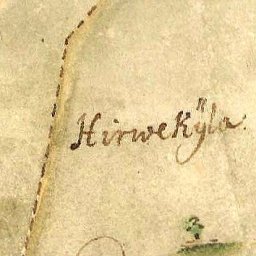 Hirwekÿla.